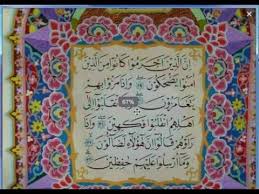 إِنَّ الَّذِينَ أَجْرَمُوا كَانُوا مِنَ الَّذِينَ
آمَنُوا يَضْحَكُونَ ﴿٢٩﴾ وَإِذَا مَرُّوا بِهِمْ
يَتَغَامَزُونَ ﴿٣٠﴾ وَإِذَا انْقَلَبُوا إِلَىٰ
أَهْلِهِمُ انْقَلَبُوا فَكِهِينَ ﴿٣١﴾ وَإِذَا
رَأَوْهُمْ قَالُوا إِنَّ هَٰؤُلَاءِ لَضَالُّونَ ﴿٣٢﴾
وَمَا أُرْسِلُوا عَلَيْهِمْ حَافِظِينَ ﴿٣٣﴾
67%